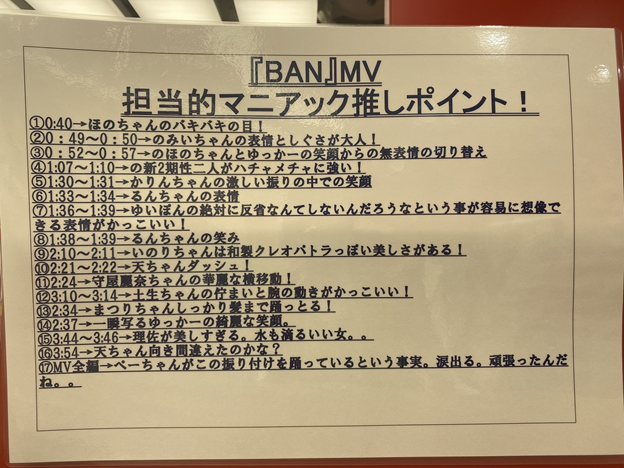 『BAN』MV
担当的マニアック推しポイント！
①0:40→ほのちゃんのバキバキの目！
②0：49～0：50→のみいちゃんの表情としぐさが大人！
③0：52～0：57→のほのちゃんとゆっかーの笑顔からの無表情の切り替え
④1:07～1:10→の新2期性二人がハチャメチャに強い！
⑤1:30～1:31→かりんちゃんの激しい振りの中での笑顔
⑥1:33～1:34→るんちゃんの表情
⑦1:36～1:39→ゆいぽんの絶対に反省なんてしないんだろうなという事が容易に想像で
きる表情がかっこいい！
⑧1:38～1:39→るんちゃんの笑み
⑨2:10～2:11→いのりちゃんは和製クレオパトラっぽい美しさがある！
⑩2:21～2:22→天ちゃんダッシュ！
⑪2:24→守屋麗奈ちゃんの華麗な横移動！
⑫3:10～3:14→土生ちゃんの佇まいと腕の動きがかっこいい！
⑬2:34→まつりちゃんしっかり髪まで踊っとる！
⑭2:37→一瞬写るゆっかーの綺麗な笑顔。
⑮3:44～3:46→理佐が美しすぎる。水も滴るいい女。。
⑯3:54→天ちゃん向き間違えたのかな？
⑰MV全編→べーちゃんがこの振り付けを踊っているという事実。涙出る。頑張ったんだ
ね。。